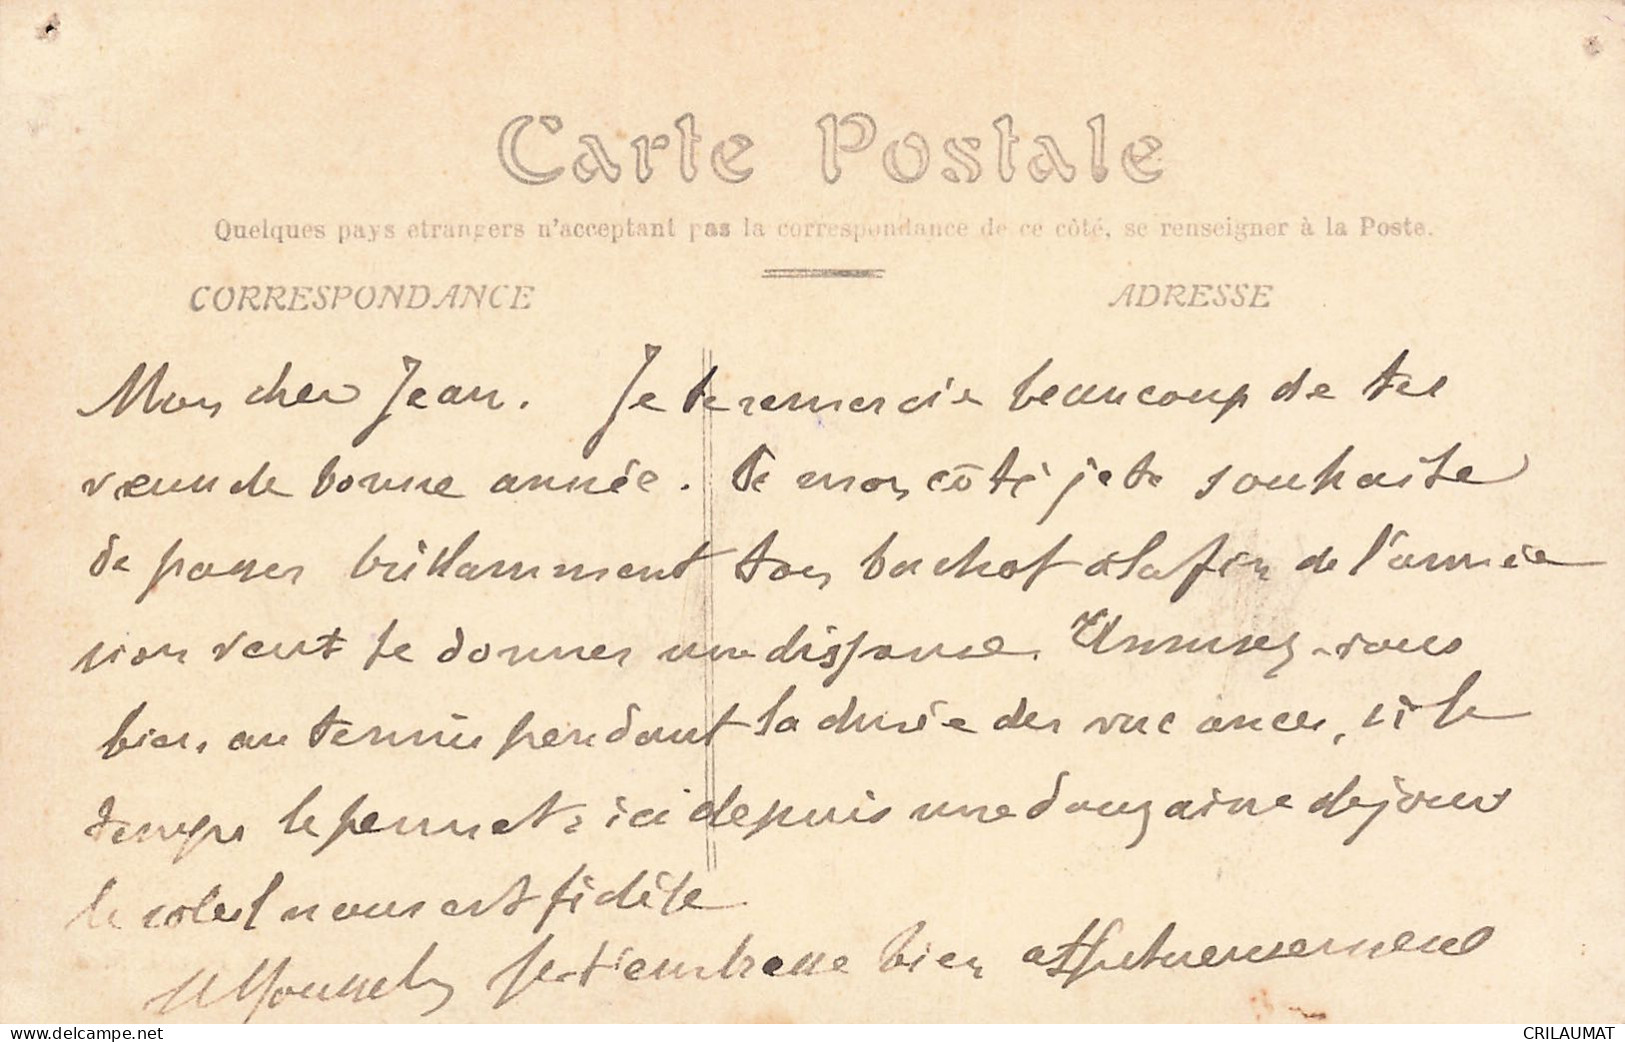 Carte Postale
Quelques pays etrangers n'acceptant pas la correspondance de ce côté, se renseigner à la Poste.
CORRESPONDANCE
ADRESSE
Mon cher Jean. Je te remercie beaucoup de tes
vœux de bonne année. De mon côté je te souhaite
de passer brillamment ton bachot à la fin de l'année
si on veut te donner une dispense. Amusez-vous
bien au tennis pendant la durée des vacances, si le
temps le permet, ici depuis une douzaine de jours
le soleil nous est fidèle
Je t'embrasse bien affectueusement
www.delcampe.net
CRILAUMAT